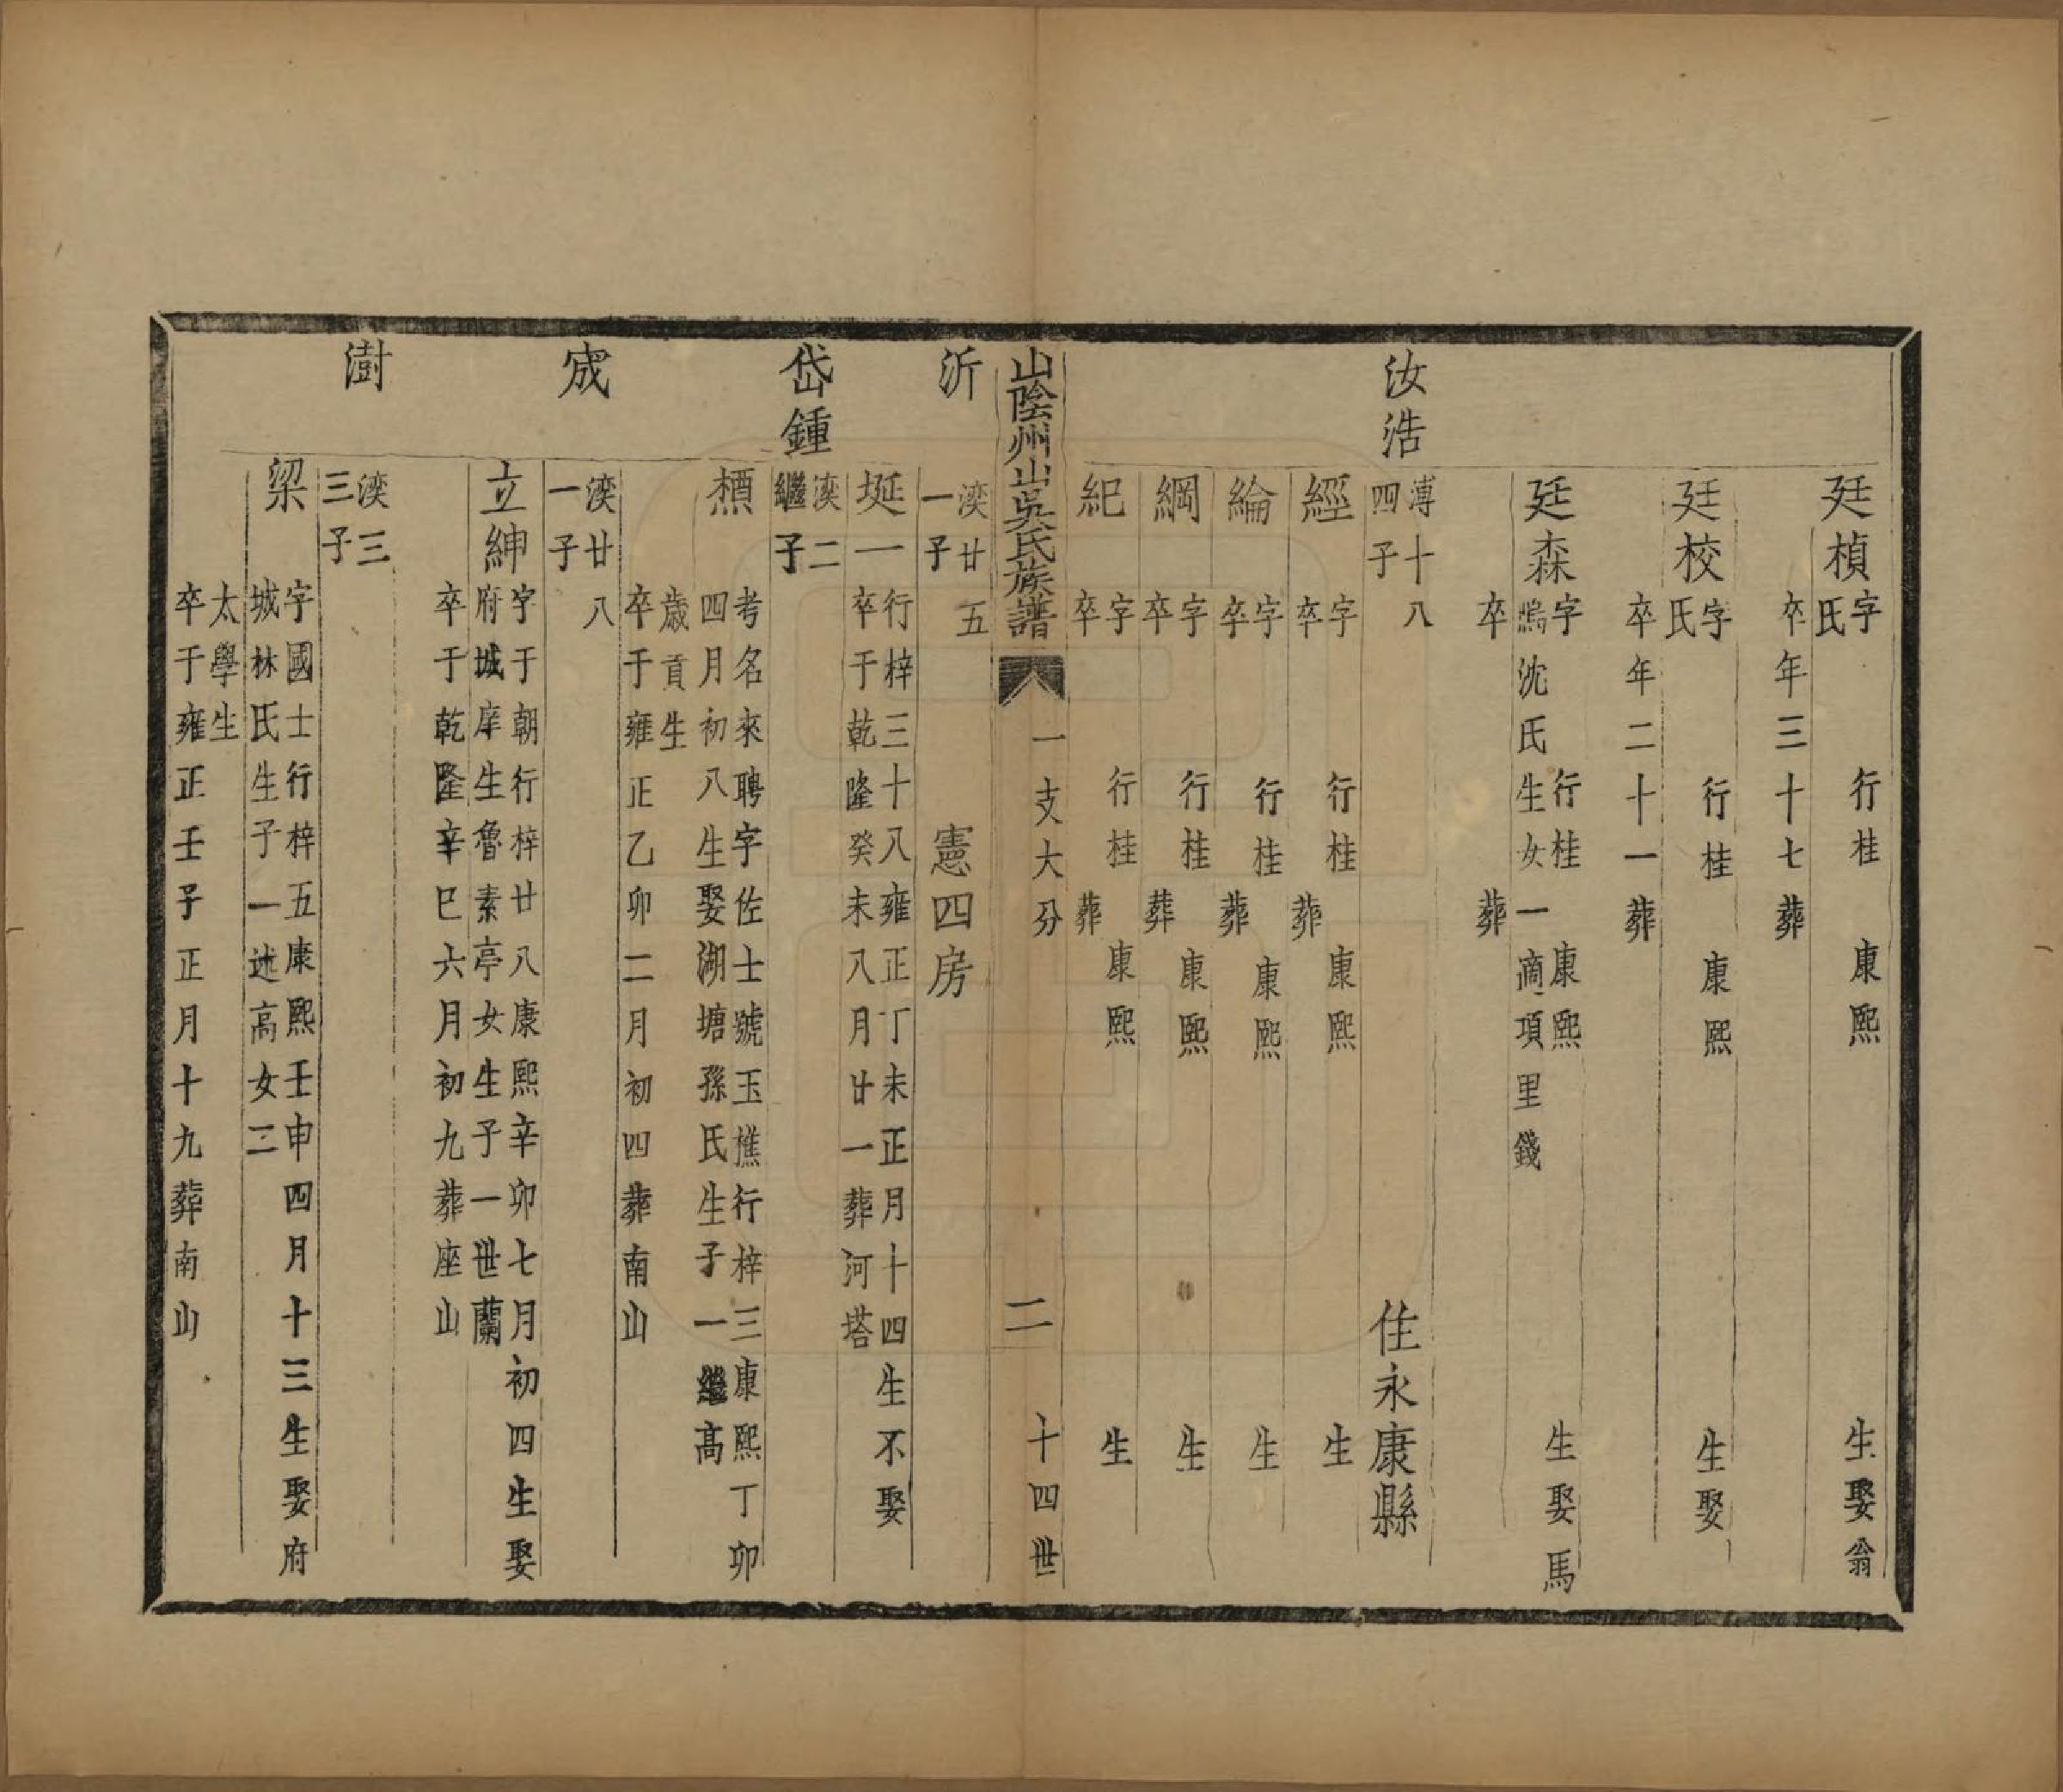 廷楨
字 行桂 康熙 生娶翁
氏
卒年三十七葬
廷校
字 行桂 康熙 生娶
氏
卒年二十一葬
廷森
字 行桂 康熙 生娶馬
鳴沈氏生女一適項里錢
卒 葬
汝浩
溥十八
四子
住永康縣
經
字 行桂 康熙 生
卒 葬
綸
字 行桂 康熙 生
卒 葬
綱
字 行桂 康熙 生
卒 葬
紀
字 行桂 康熙 生
卒 葬
山陰州山吳氏族譜 一支大分 二 十四世
憲四房
沂
湙廿五
一子
埏一
行梓三十八雍正丁未正月十四生不娶
卒于乾隆癸未八月廿一葬河塔
岱鍾
湙二
繼子
槱
考名來聘字佐士號玉樵行梓三康熙丁卯
四月初八生娶湖塘孫氏生子一繼高
歲貢生
卒于雍正乙卯二月初四葬南山
宬
湙廿八
一子
立紳
字于朝行梓廿八康熙辛卯七月初四生娶
府城庠生魯素亭女生子一世蘭
卒于乾隆辛巳六月初九葬座山
澍
湙三
三子
梁
字國士行梓五康熙壬申四月十三生娶府
城林氏生子一述高女二
太學生
卒于雍正壬子正月十九葬南山